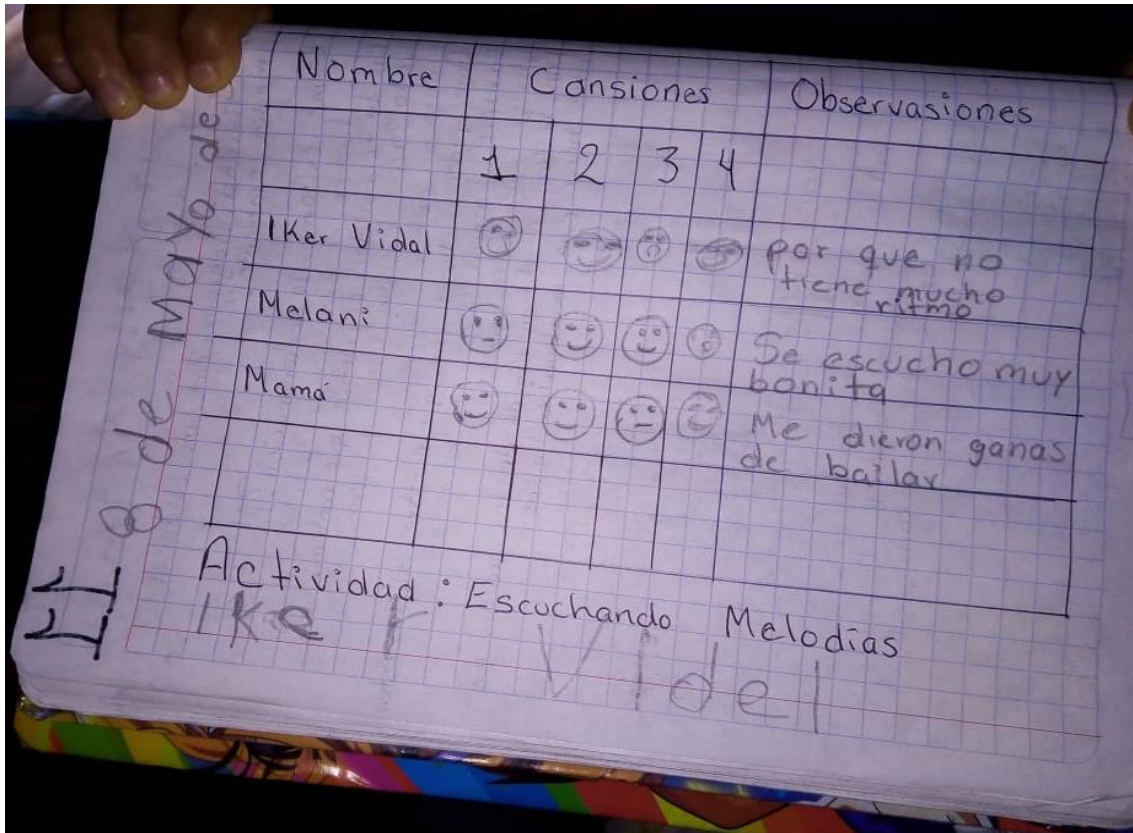 Nombre Cansiones Observasiones
1 2 3 4
Iker Vidal por que no
tiene mucho
ritmo
Melani Se escucho muy
bonita
Mamá Me dieron ganas
de bailar
Actividad: Escuchando Melodías
Iker Videl
8 de Mayo de